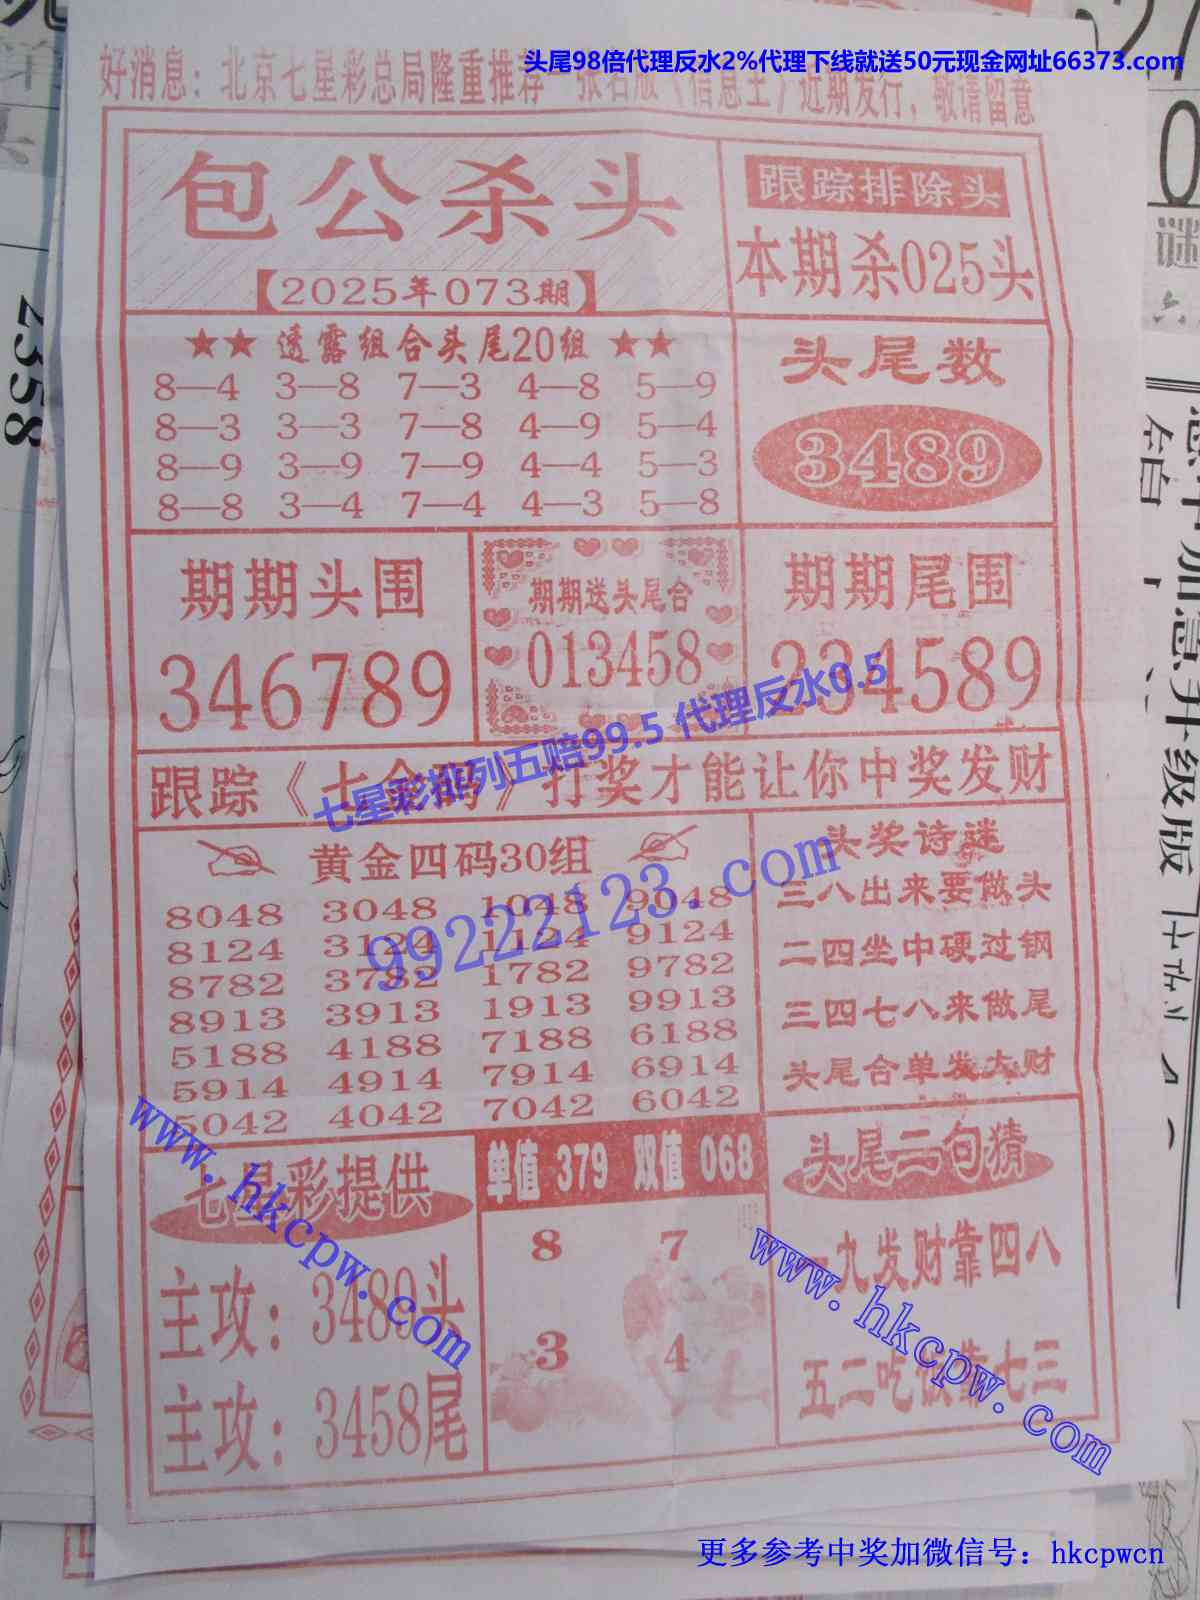 头尾98倍代理反水2%代理下线就送50元现金网址66373.com
好消息：北京七星彩总局隆重推荐一张石版《信息王》近期发行，敬请留意
包公杀头
【2025年073期】
跟踪排除头
本期杀025头
★★ 透露组合头尾20组 ★★
8—4 3—8 7—3 4—8 5—9
8—3 3—3 7—8 4—9 5—4
8—9 3—9 7—9 4—4 5—3
8—8 3—4 7—4 4—3 5—8
头尾数
3489
期期头围
346789
期期送头尾合
013458
期期尾围
234589
七星彩排列五赔99.5 代理反水0.5
跟踪《七金码》打奖才能让你中奖发财
黄金四码30组
8048 3048 1048 9048
8124 3124 1124 9124
8782 3782 1782 9782
8913 3913 1913 9913
5188 4188 7188 6188
5914 4914 7914 6914
5042 4042 7042 6042
99222123.com
头奖诗谜
三八出来要做头
二四坐中硬过钢
三四七八来做尾
头尾合单发大财
www.hkcpw.com
七星彩提供
主攻：3489头
主攻：3458尾
单值 379 双值 068
8 7
3 4
头尾二句猜
一九发财靠四八
五二吃饭靠七三
www.hkcpw.com
更多参考中奖加微信号：hkcpwcn
2358